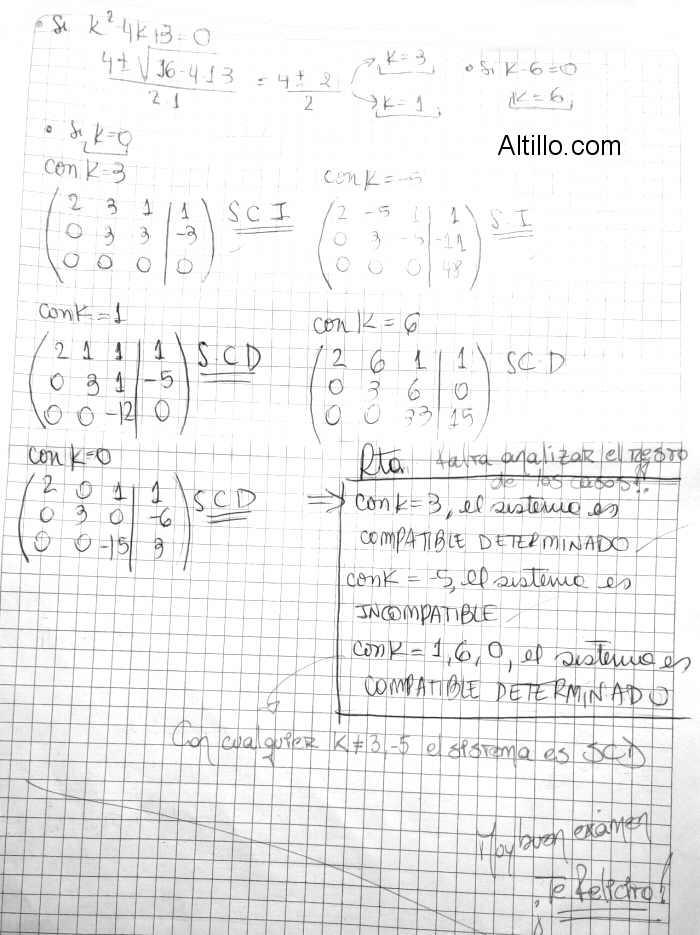 • Si k²-4k+3=0
4±√16-4·1·3 / 2·1 = 4±2 / 2
k=3
k=1
• Si k-6=0
k=6
• Si k=0
Altillo.com
con k=3
2 3 1 | 1
0 3 3 | -3
0 0 0 | 0
SCI
con k=-5
2 -5 1 | 1
0 3 -5 | -11
0 0 0 | 48
SI
con k=1
2 1 1 | 1
0 3 1 | -5
0 0 -12 | 0
SCD
con k=6
2 6 1 | 1
0 3 6 | 0
0 0 33 | 15
SCD
con k=0
2 0 1 | 1
0 3 0 | -6
0 0 -15 | 3
SCD
Rta falta analizar el resto
de los casos!!
⇒ con k=3, el sistema es
COMPATIBLE DETERMINADO
con k=-5, el sistema es
INCOMPATIBLE
con k=1, 6, 0, el sistema es
COMPATIBLE DETERMINADO
Con cualquier k≠3,-5 el sistema es SCD
Muy buen exámen
¡Te felicito!